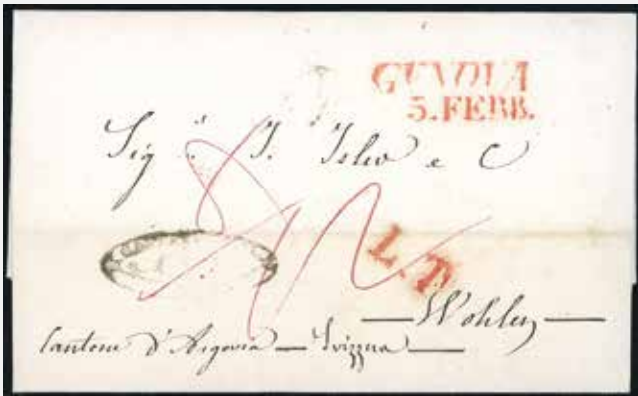 GENOVA
5. FEBB.
Sig.ri J. Isler e C
L.T.
Wohlen
Cantone d'Argovia — Svizzera